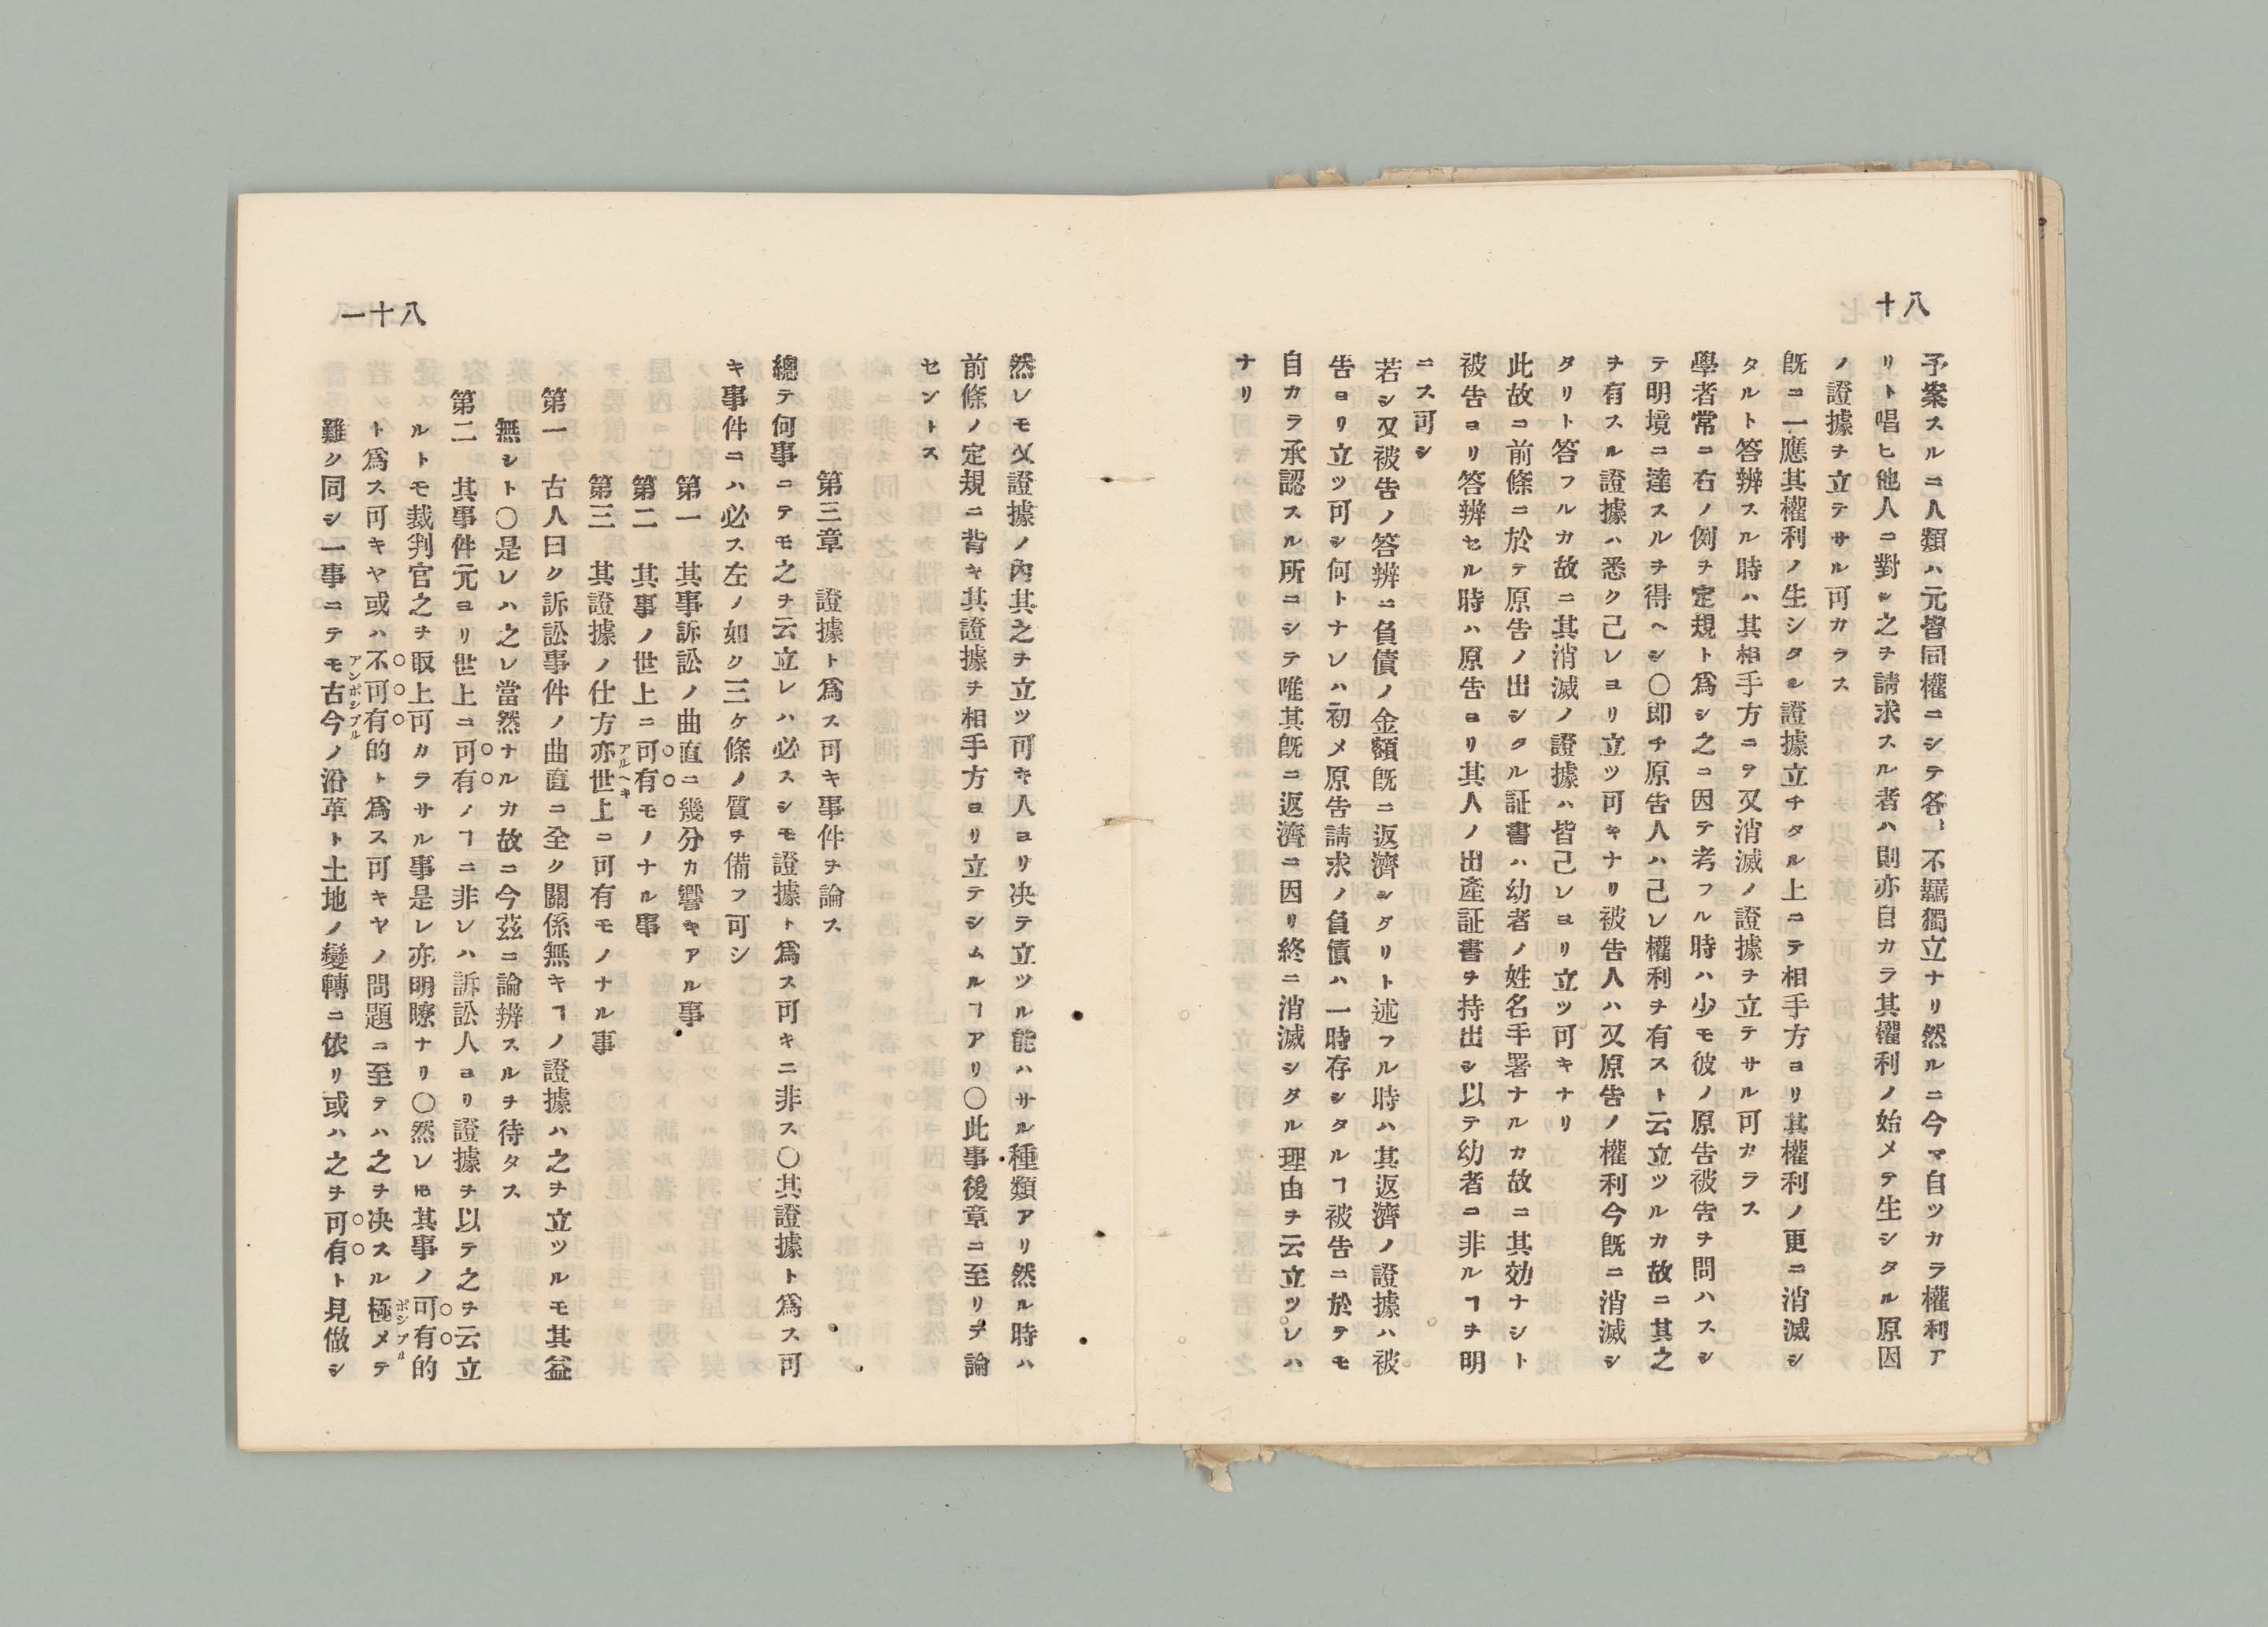 八十
予案スルニ人類ハ元皆同權ニシテ各〻不羈獨立ナリ然ルニ今マ自ツカラ權利ア
リト唱ヒ他人ニ對シ之ヲ請求スル者ハ則亦自カラ其權利ノ始メテ生シタル原因
ノ證據ヲ立テサル可カラス
既ニ一應其權利ノ生シタル證據立チタル上ニテ相手方ヨリ其權利ノ更ニ消滅シ
タルト答辨スル時ハ其相手方ニテ又消滅ノ證據ヲ立テサル可カラス
學者常ニ右ノ例ヲ定規ト爲シ之ニ因テ考フル時ハ少モ彼ノ原告被告ヲ問ハスシ
テ明境ニ達スルヲ得ヘシ〇即チ原告人ハ己レ權利ヲ有スト云立ツルカ故ニ其之
ヲ有スル證據ハ悉ク己レヨリ立ツ可キナリ被告人ハ又原告ノ權利今既ニ消滅シ
タリト答フルカ故ニ其消滅ノ證據ハ皆己レヨリ立ツ可キナリ
此故ニ前條ニ於テ原告ノ出シタル証書ハ幼者ノ姓名手署ナルカ故ニ其効ナシト
被告ヨリ答辨セル時ハ原告ヨリ其人ノ出產証書ヲ持出シ以テ幼者ニ非ルヿヲ明
ニス可シ
若シ又被告ノ答辨ニ負債ノ金額既ニ返濟シタリト述フル時ハ其返濟ノ證據ハ被
告ヨリ立ツ可シ何トナレハ初メ原告請求ノ負債ハ一時存シタルヿ被告ニ於テモ
自カラ承認スル所ニシテ唯其既ニ返濟ニ因リ終ニ消滅シタル理由ヲ云立ツレハ
ナリ
八十一
然レモ又證據ノ內其之ヲ立ツ可キ人ヨリ决テ立ツル能ハサル種類アリ然ル時ハ
前條ノ定規ニ背キ其證據ヲ相手方ヨリ立テシムルヿアリ〇此事後章ニ至リテ論
セントス
第三章　證據ト爲ス可キ事件ヲ論ス
總テ何事ニテモ之ヲ云立レハ必スシモ證據ト爲ス可キニ非ス〇其證據ト爲ス可
キ事件ニハ必ス左ノ如ク三ケ條ノ質ヲ備フ可シ
第一　其事訴訟ノ曲直ニ幾分カ響キアル事
第二　其事ノ世上ニ可有モノナル事
第三　其證據ノ仕方亦世上ニ可有モノナル事
第一　古人曰ク訴訟事件ノ曲直ニ全ク關係無キヿノ證據ハ之ヲ立ツルモ其益
無シト〇是レハ之レ當然ナルカ故ニ今茲ニ論辨スルヲ待タス
第二　其事件元ヨリ世上ニ可有ノヿニ非レハ訴訟人ヨリ證據ヲ以テ之ヲ云立
ルトモ裁判官之ヲ取上可カラサル事是レ亦明瞭ナリ〇然レ𪜈其事ノ可有的
ト爲ス可キヤ或ハ不可有的ト爲ス可キヤノ問題ニ至テハ之ヲ决スル極メテ
難ク同シ一事ニテモ古今ノ沿革ト土地ノ變轉ニ依リ或ハ之ヲ可有ト見做シ